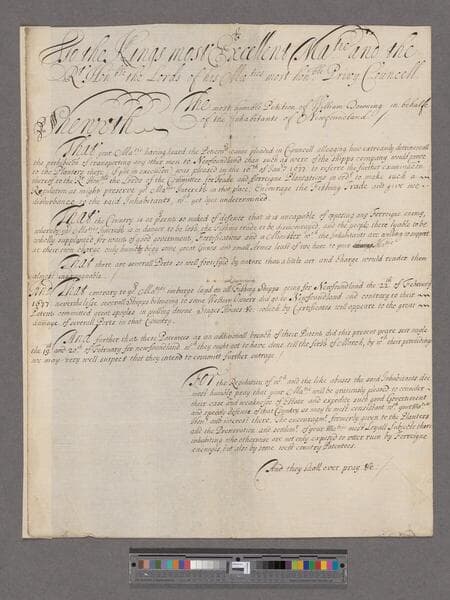 To the Kings most Excellent Ma.tie and the
R.t Hon.ble the Lords of his Ma.ties most hon.ble Privy Councell
The most humble Petition of William Downing in behalfe
of the Inhabitants of Newfoundland
Sheweth
That your Ma.tie having heard the Peticon.r cause pleaded in Councell alleaging how extreamly detrimentall
the prohibition of transporting any other men to Newfoundland than such as were of the shipps company would prove
to the Planters there, was pleased on the 10.th of Jan.y 1677 to referre the further examination
thereof to the R.t Hon.ble the Lords of the Committee for Trade and forreigne Plantations in order to make such a
Regulation as might preserve yo.r Ma.ties Interest in that place, Encourage the Fishing Trade and give noe
disturbance to the said Inhabitants, w.ch yet lyes undetermined.
That the Country is at present so naked of defence that it is uncapable of opposing any Forreigne enemy,
whereby yo.r Ma.ties Interest is in danger to be lost, the Fishing trade to be discouraged, and the people there lyable to be
wholly supplanted for want of good government, Fortifications and a Minister w.ch the Inhabitants are willing to support
at their own charge only humbly begg some great Gunns and small Armes
That there are severall Ports so well fortifyed by nature that a little art and Charge would render them
almost impregnable
And That contrary to yo.r Ma.ties imbargo layd on all Fishing Shipps going for Newfoundland the 22.th of February
1677 neverthelesse severall Shipps belonging to some Western Owners did go to Newfoundland and contrary to their
Patent committed great spoyles in pulling downe Stages Houses &c which by Certificates will appeare to the great
damage of severall Ports in that Country.
And further that these Patentees as an additionall breach of these Patent did this present yeare set sayle
the 19.th and 20.th of February for newfoundland w.ch they ought not to have done till the first of March, by w.ch their proceeding
we may very well suspect that they intend to committ further outrage
For the Regulation of w.ch and the like abuses the said Inhabitants doe
most humbly pray that your Ma.tie will be graciously pleased to consider
their case and weaknesse of Estate and expedite such good Government
and speedy defence of that Country as may be most consistant w.th your Ma.ties
Hon.r and interest there. The encouragem.t formerly given to the Planters
and the Preservation and settlem.t of your Ma.ties most Loyall Subjects there
inhabiting who otherwise are not only exposed to utter ruin by Forreigne
enemyes, but also by some west Country Patentees.
And they shall ever pray &c